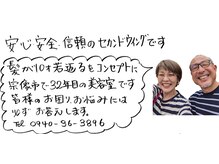 安心安全信頼のセカンドウィングです
髪が10才若返るをコンセプトに
宗像市で32年目の美容室です
皆様のお困り、お悩みには
必ずお答えします。
TEL 0940-36-3896